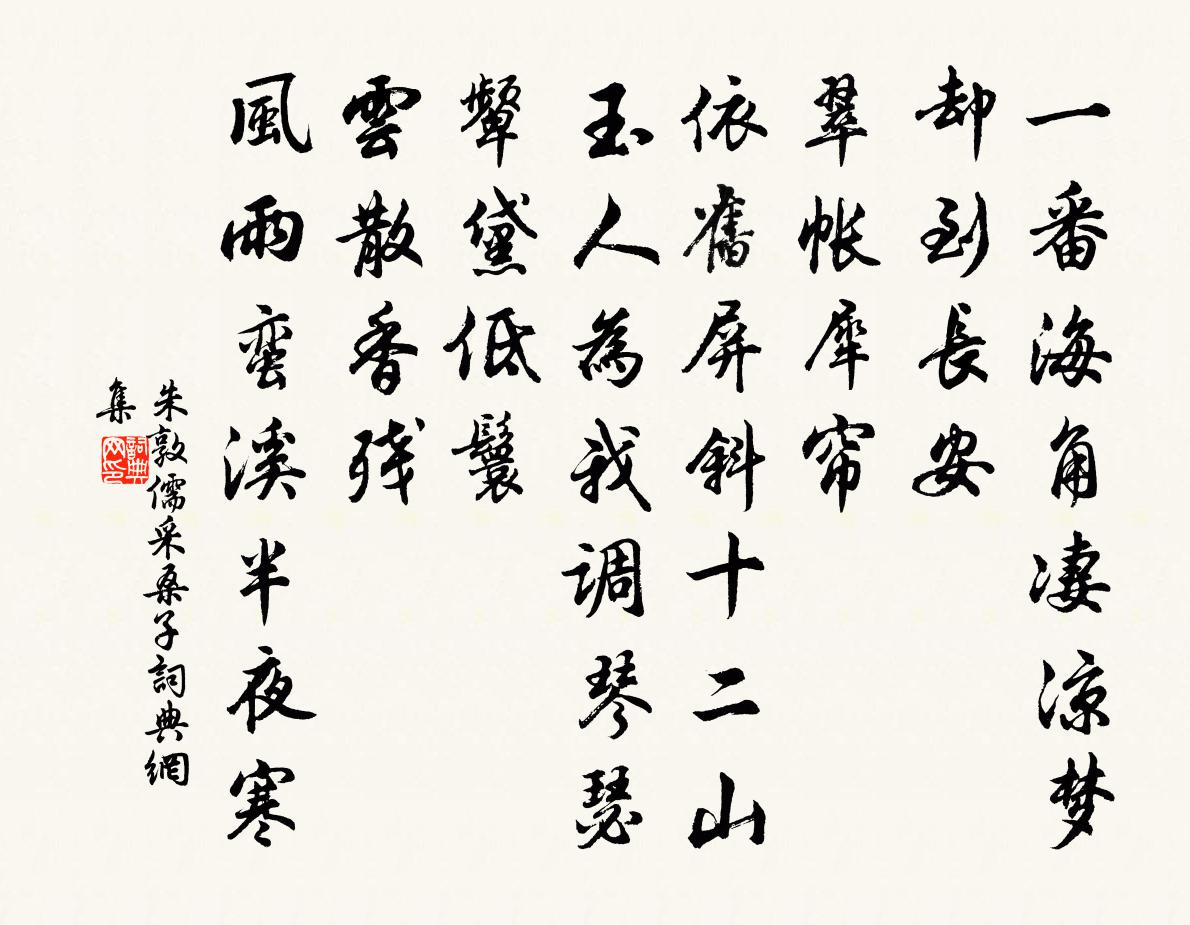 一番海角凄涼梦
却到長安
翠帐犀帘
依舊屏斜十二山
玉人為我调琴瑟
颦黛低鬟
雲散香残
風雨蛮溪半夜寒
朱敦儒采桑子詞典網
集
詞典
网